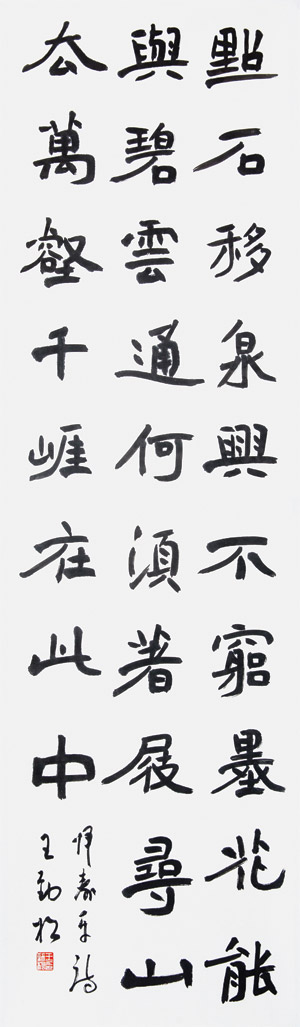 點石移泉興不窮墨花能
與碧雲通何須著屐尋山
去萬壑千崕在此中
惲壽平詩
王勤松